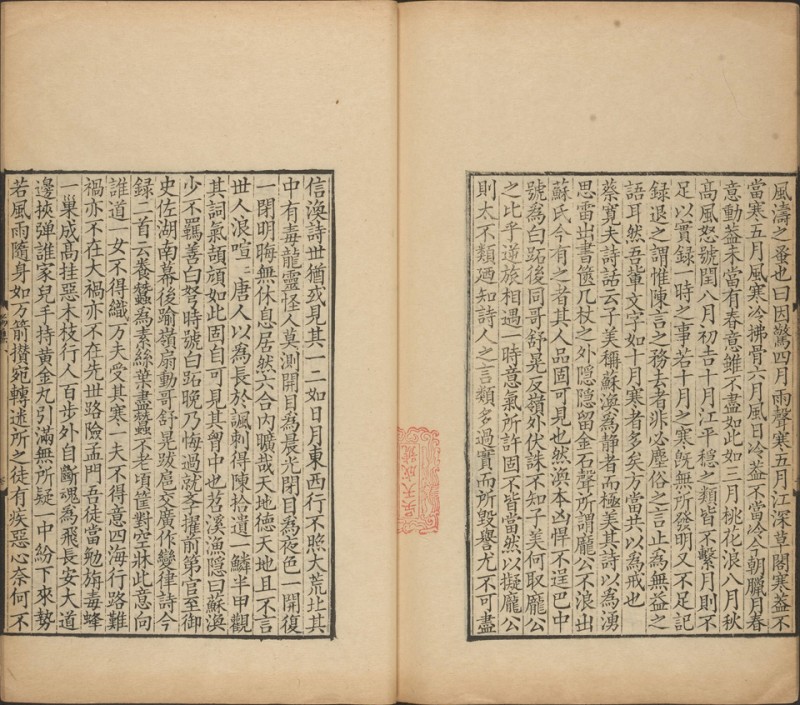 風濤之蚤也曰因驚四月雨聲寒五月江深草閣寒蓋不
當寒五月風寒冷拂骨六月風日冷蓋不當冷今朝臘月春
意動蓋未當有春意雖不盡如此如三月桃花浪八月秋
髙風怒號閏八月初吉十月江平穩之類皆不繫月則不
足以實録一時之事若十月之寒旣無所發明又不足記
録退之謂惟陳言之務去者非必塵俗之言止為無益之
語耳然吾輩文字如十月寒者多矣方當共以為戒也
蔡寛夫詩話云子美稱蘇渙為靜者而極美其詩以為湧
思雷出書篋几杖之外隱隱留金石聲所謂龐公不浪出
蘇氏今有之者其人品固可見也然渙本凶悍不逞巴中
號為白跖後同哥舒晃反嶺外伏誅不知子美何取龐公
之比乎逆旅相遇一時意氣所許固不皆當然以擬龐公
則太不類廼知詩人之言類多過實而所毀譽尤不可盡
信渙詩世猶或見其一二如日月東西行不照大荒北其
中有毒龍靈怪人莫測開目為晨光閉目為夜色一開復
一閉明晦無休息居然六合內曠哉天地德天地且不言
世人浪喧喧唐人以為長於諷刺得陳拾遺一鱗半甲觀
其詞氣頡頏如此固自可見其胷中也苕溪漁隱曰蘇渙
少不羈善白弩時號白跖晚乃悔過就李擢前第官至御
史佐湖南幕後踰嶺扇動哥舒晃跋扈交廣作變律詩今
録二首云養蠶為素絲葉盡蠶不老頃筐對空牀此意向
誰道一女不得織万夫受其寒一夫不得意四海行路難
禍亦不在大禍亦不在先世路險孟門吾徒當勉旃毒蜂
一巢成髙挂惡木枝行人百步外目斷魂為飛長安大道
邊挾彈誰家兒手持黄金丸引滿無所疑一中紛下來勢
若風雨隨身如万箭攢宛轉迷所之徒有疾惡心奈何不